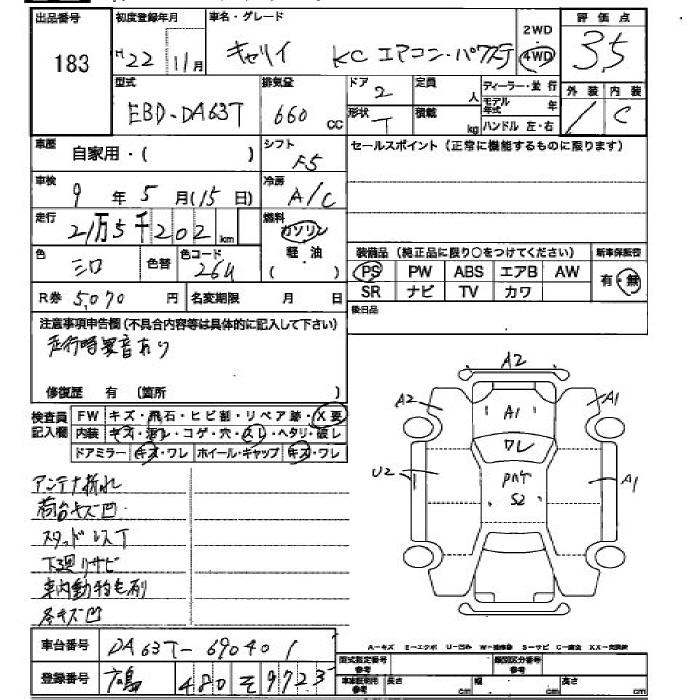 出品番号 183
初度登録年月 H22 11月
車名・グレード キャリイ KC エアコン・パワステ
2WD 4WD
評価点 3.5
型式 EBD-DA63T
排気量 660 cc
ドア 2 定員 人
形状 T 積載 kg
ディーラー・並行
モデル年式 年
ハンドル 左・右
外装 内装 C
車歴 自家用・( )
シフト F5
セールスポイント(正常に機能するものに限ります)
車検 9年 5月(15日)
冷房 A/C
走行 21万5千202km
燃料 ガソリン 軽・油 ( )
装備品(純正品に限り○をつけてください) 新車保証書
色 シロ 色替 色コード 26U
PS PW ABS エアB AW 有・無
SR ナビ TV カワ
R券 5,070円 名変期限 月 日
後日品
注意事項申告欄(不具合内容等は具体的に記入して下さい)
走行時異音あり
修復歴 有(箇所 )
検査員記入欄
FW キズ・飛石・ヒビ割・リペア跡・X要
内装 キズ・コゲ・穴・スレ・ヘタリ・破レ
ドアミラー キズ・ワレ ホイール・キャップ キズ・ワレ
A2
A2 A1 A1
ワレ
U2 A1
S2
アンテナ折れ
荷台キズ凹
スタッドレスT
下廻りサビ
車内動物毛有
各キズ凹
車台番号 DA63T-690401
登録番号 480 そ 9723
A-キズ E-エクボ U-凹み S-サビ XX-交換済
型式指定番号 参考 類別区分番号 参考
長さ cm 幅 cm 高さ cm